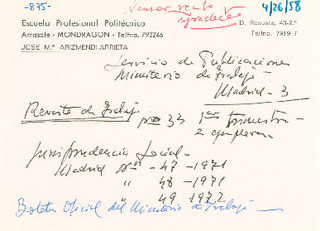 -875-
4/26/58
Escuela Profesional Politécnica
Arrasate - MONDRAGON - Telfno. 792246
JOSE M.ª ARIZMENDI-ARRIETA
D. Rocusta, 43-2.º
Telfno. 791917
Servicio de Publicaciones
Ministerio de Trabajo
Madrid - 3
Revista de Trabajo nº 33 1er trimestre
2 ejemplares
Jurisprudencia Social -
Madrid nos - 47 - 1971
" 48 - 1971
" 49 1972
Boletin Oficial del Ministerio de Trabajo